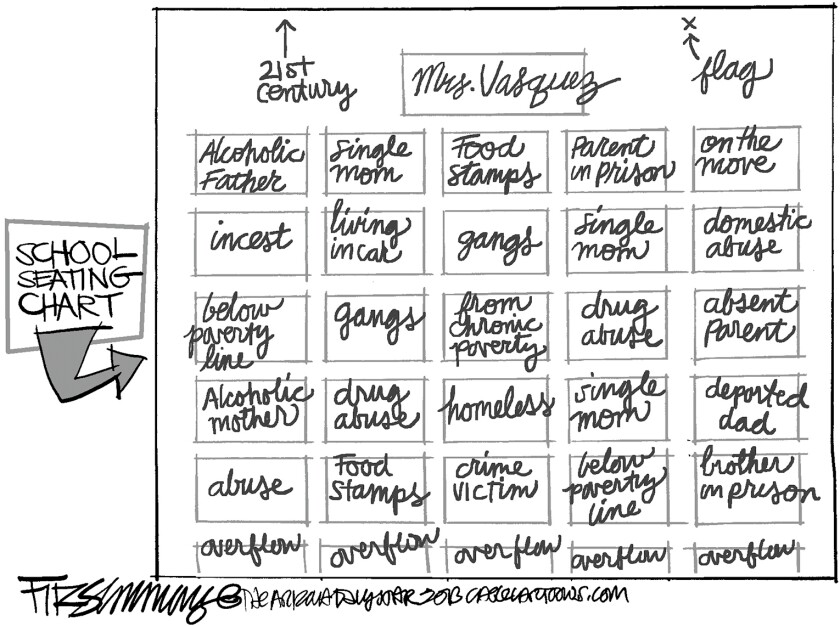 x
21st
century
Mrs. Vasquez
flag
SCHOOL
SEATING
CHART
Alcoholic
Father
single
mom
Food
Stamps
Parent
in prison
on the
move
incest
living
in car
gangs
single
mom
domestic
abuse
below
poverty
line
gangs
from
chronic
poverty
drug
abuse
absent
parent
Alcoholic
mother
drug
abuse
homeless
single
mom
deported
dad
abuse
Food
Stamps
crime
victim
below
poverty
line
brother
in prison
overflow
overflow
overflow
overflow
overflow
FITZSIMMONS © THE ARIZONA DAILY STAR 2013 CAGLECARTOONS.COM